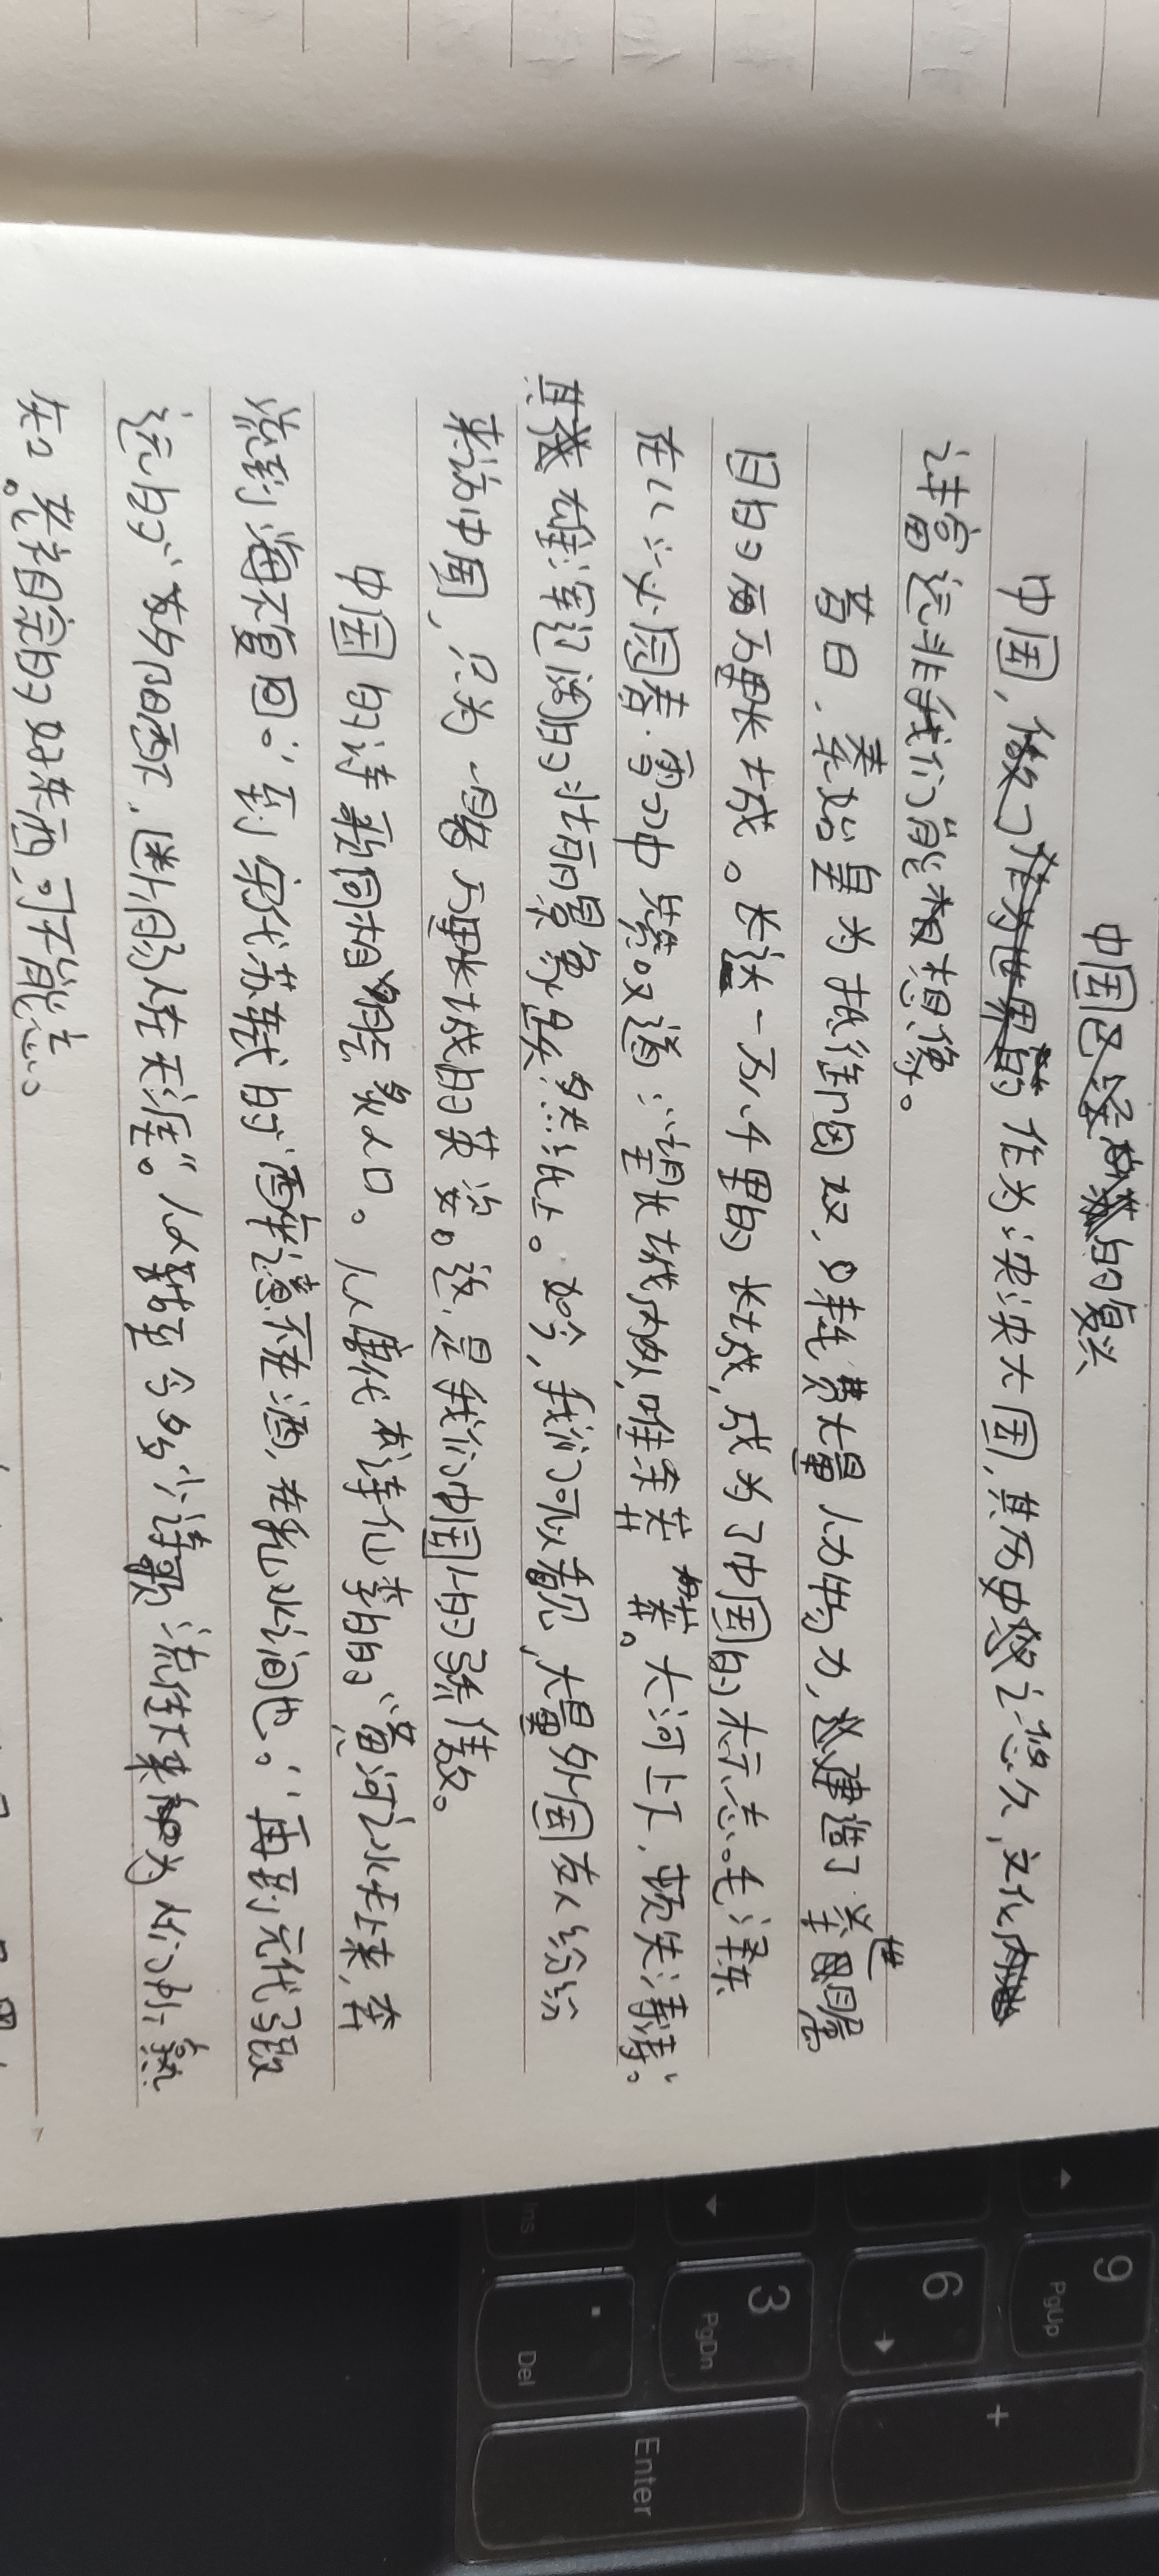 中国的复兴
中国,作为泱泱大国,其历史之悠久,文化
详富远非我们能想像。
昔日,秦始皇为抵御匈奴,耗费大量人力物力,建造了举世瞩
目的万里长城。长达一万八千里的长城,成为了中国的标志。毛泽东
在《沁园春·雪》中赞叹道:"望长城内外,唯余莽莽。大河上下,顿失滔滔。"
其雄浑辽阔的壮丽景象跃然纸上。如今,我们可以看见,大量外国友人纷纷
来访中国,只为一睹万里长城的英姿。这,是我们中国人的骄傲。
中国的诗歌同相脍炙人口。从唐代有诗仙李白的"黄河之水天上来,奔
流到海不复回。"到宋代苏轼的"酒醉之意不在酒,在乎山水之间也。"再到元代马致
远的"夕阳西下,断肠人在天涯。"从古至今多少诗歌流传下来为人们所熟
知。老祖宗的好东西,可不能忘。
9
PgUp
6
3
PgDn
.
Del
Ins
+
Enter